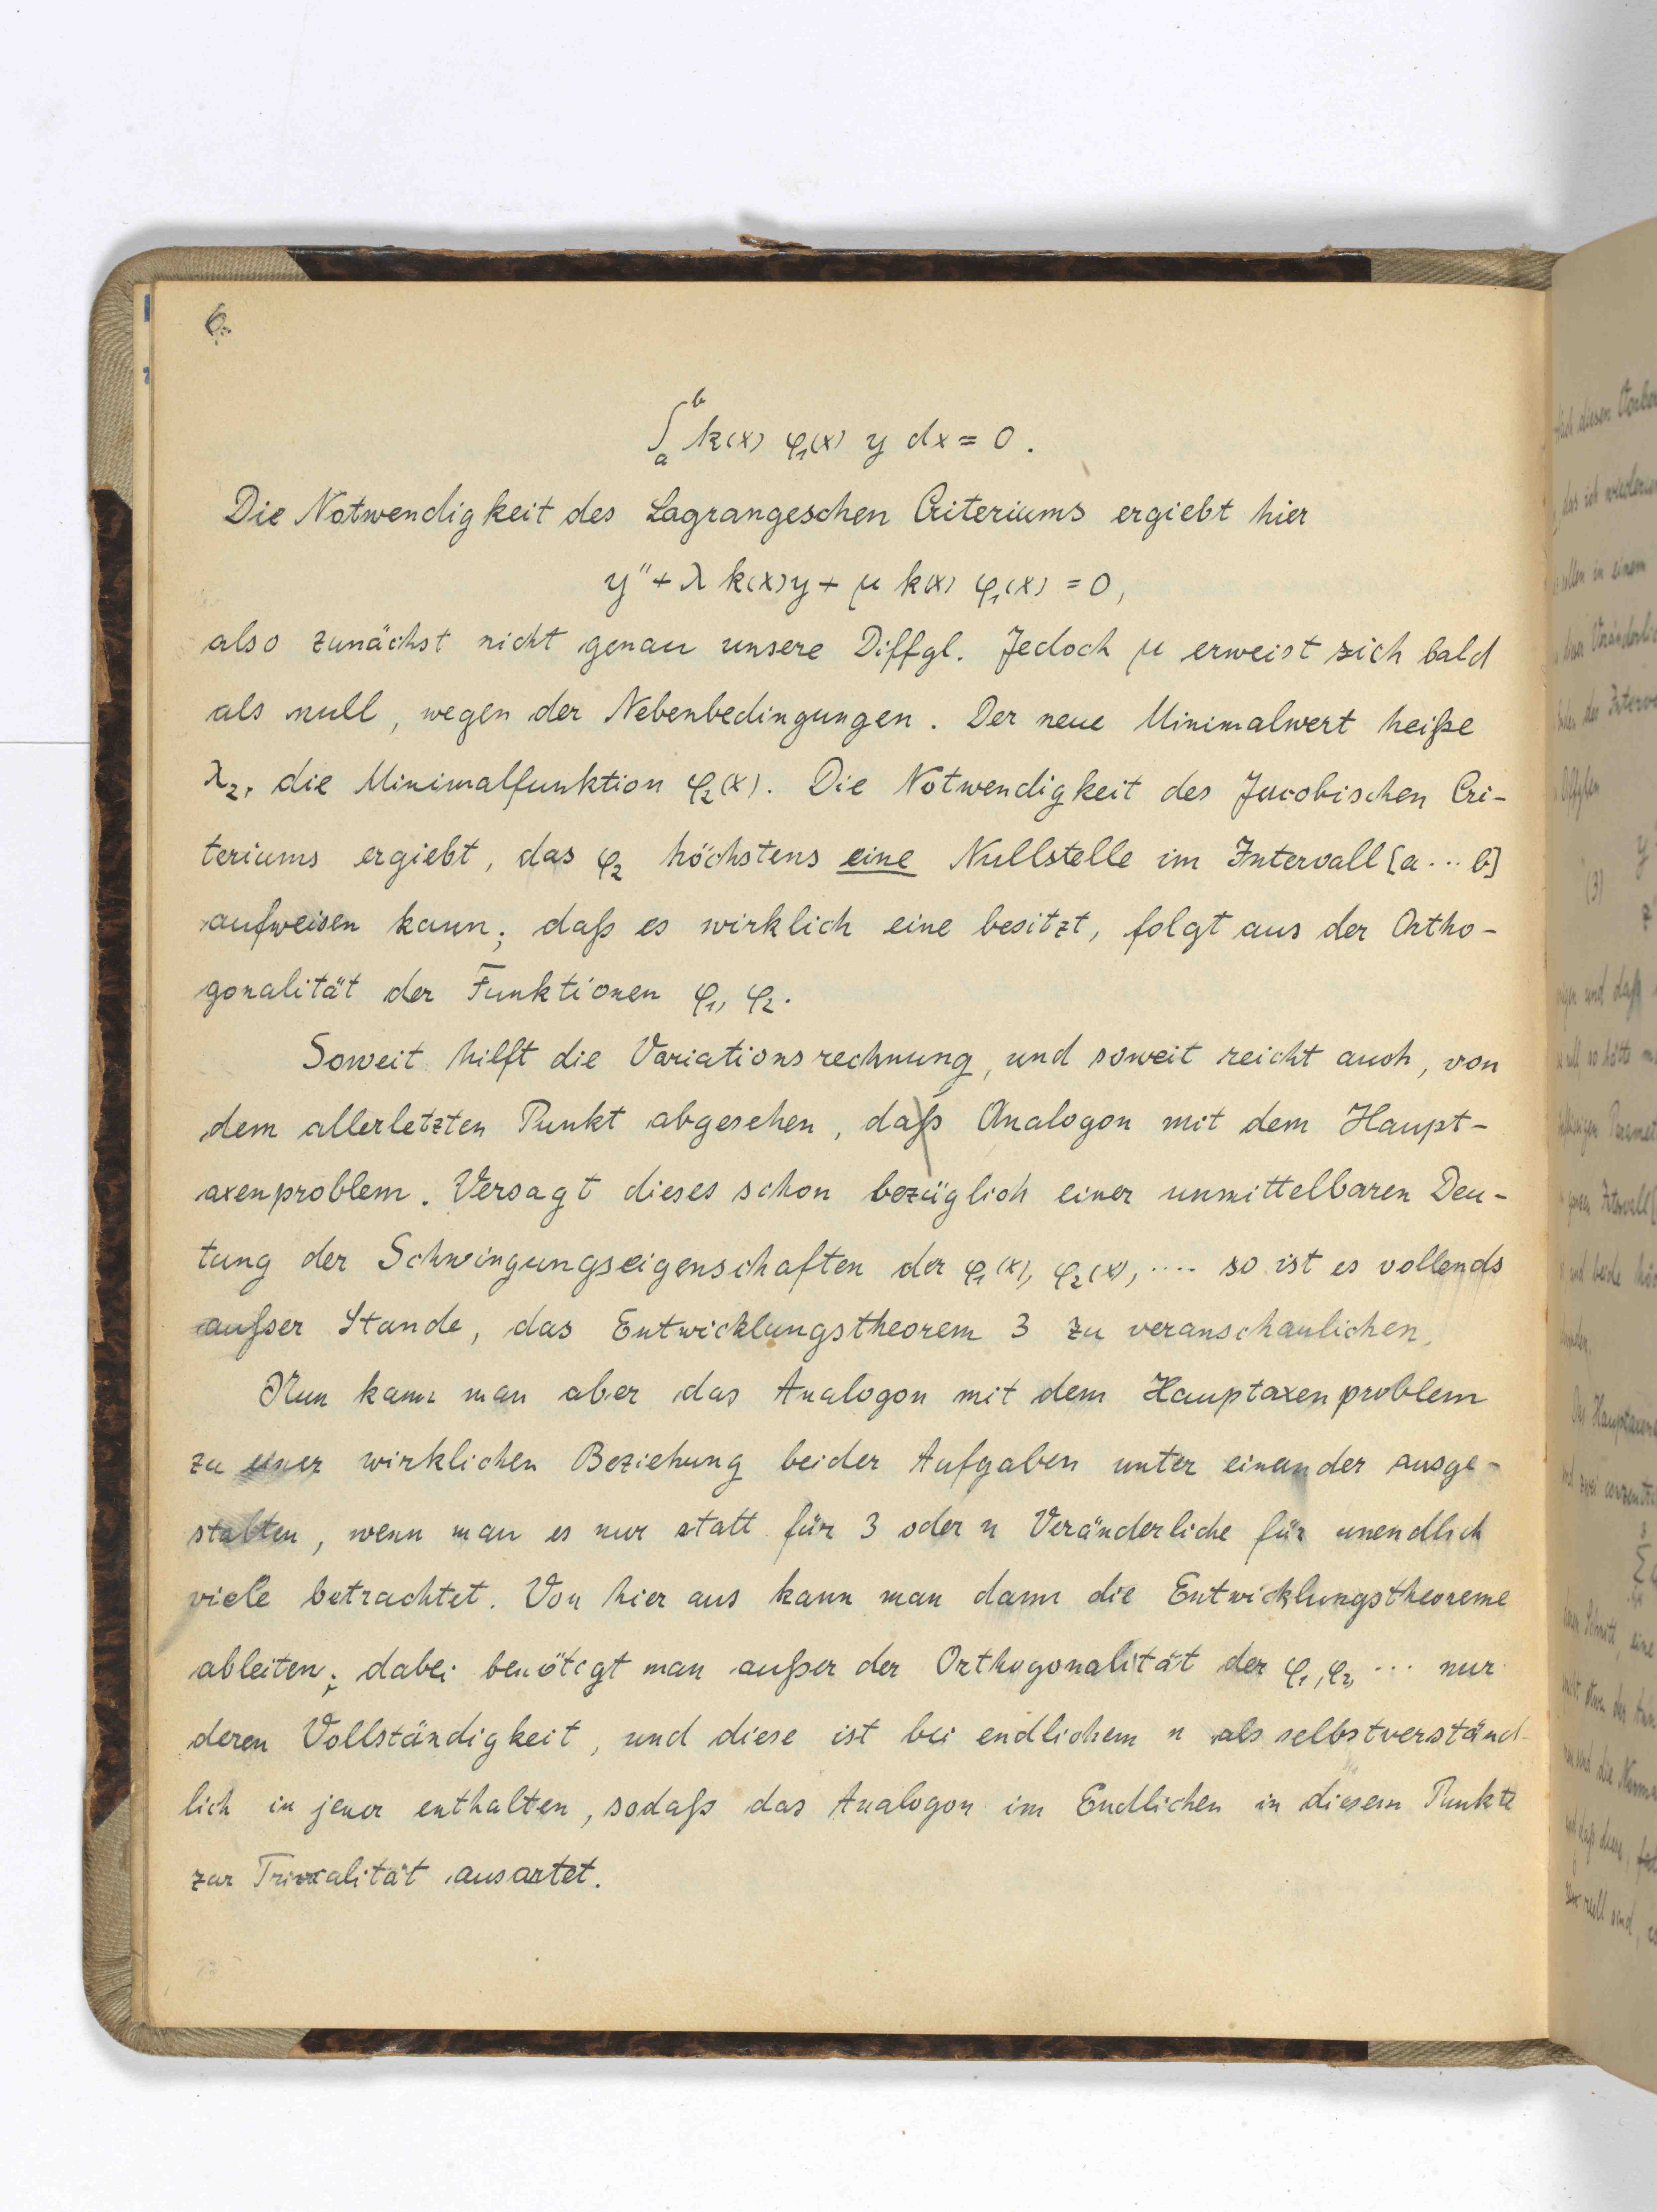 6.
∫_a^b k(x) φ₁(x) y dx = 0.
Die Notwendigkeit des Lagrangeschen Criteriums ergiebt hier
y'' + λ k(x) y + μ k(x) φ₁(x) = 0,
also zunächst nicht genau unsere Diffgl. Jedoch μ erweist sich bald
als null, wegen der Nebenbedingungen. Der neue Minimalwert heiße
λ₂, die Minimalfunktion φ₂(x). Die Notwendigkeit des Jacobischen Cri-
teriums ergiebt, das φ₂ höchstens eine Nullstelle im Intervall [a ... b]
aufweisen kann; daß es wirklich eine besitzt, folgt aus der Ortho-
gonalität der Funktionen φ₁, φ₂.
Soweit hilft die Variationsrechnung, und soweit reicht auch, von
dem allerletzten Punkt abgesehen, daß Analogon mit dem Haupt-
axenproblem. Versagt dieses schon bezüglich einer unmittelbaren Deu-
tung der Schwingungseigenschaften der φ₁(x), φ₂(x), .... so ist es vollends
außer Stande, das Entwicklungstheorem 3 zu veranschaulichen.
Nun kann man aber das Analogon mit dem Hauptaxenproblem
zu einer wirklichen Beziehung beider Aufgaben unter einander ausge-
stalten, wenn man es nur statt für 3 oder n Veränderliche für unendlich
viele betrachtet. Von hier aus kann man dann die Entwicklungstheoreme
ableiten; dabei benötigt man außer der Orthogonalität der φ₁, φ₂, ... nur
deren Vollständigkeit, und diese ist bei endlichem n als selbstverständ-
lich in jener enthalten, sodaß das Analogon im Endlichen in diesem Punkte
zur Trivialität ausartet.